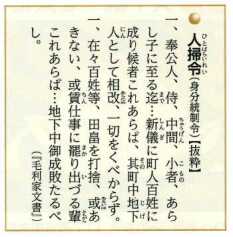 人掃令(身分統制令)【抜粋】
ひとばらいれい
一、奉公人、侍、中間、小者、あら
ちゅうげん こもの
し子に至る迄…新儀に町人百姓に
まで
成り候者これあらば、其町中地下
じげ
人として相改、一切をくべからず。
にん
一、在々百姓等、田畠を打捨、或あ
きない、或賃仕事に罷り出づる輩
これあらば…地下中御成敗たるべ
し。
(『毛利家文書』)